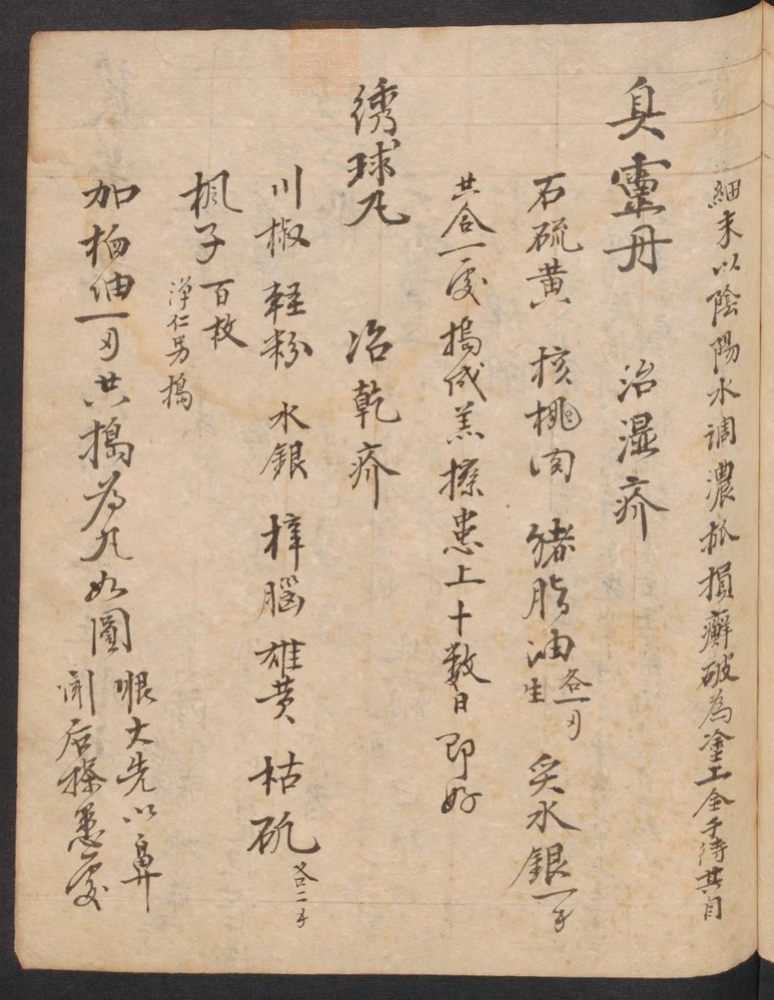 細末以陰陽水调濃抓損癬破為塗上全干待其自
臭靈丹 治湿疥
石硫黄 核桃肉 猪脂油 生 各一刄 炙水銀一子
共合一處搗成羔擦患上十数日即好
绣球丸 治乾疥
川椒 軽粉 水銀 梓腦 雄黄 枯矾 各二子
枫子百枚 净仁另搗
加柏油一刄共搗為丸如圓
眼大先以鼻
闻后擦患處